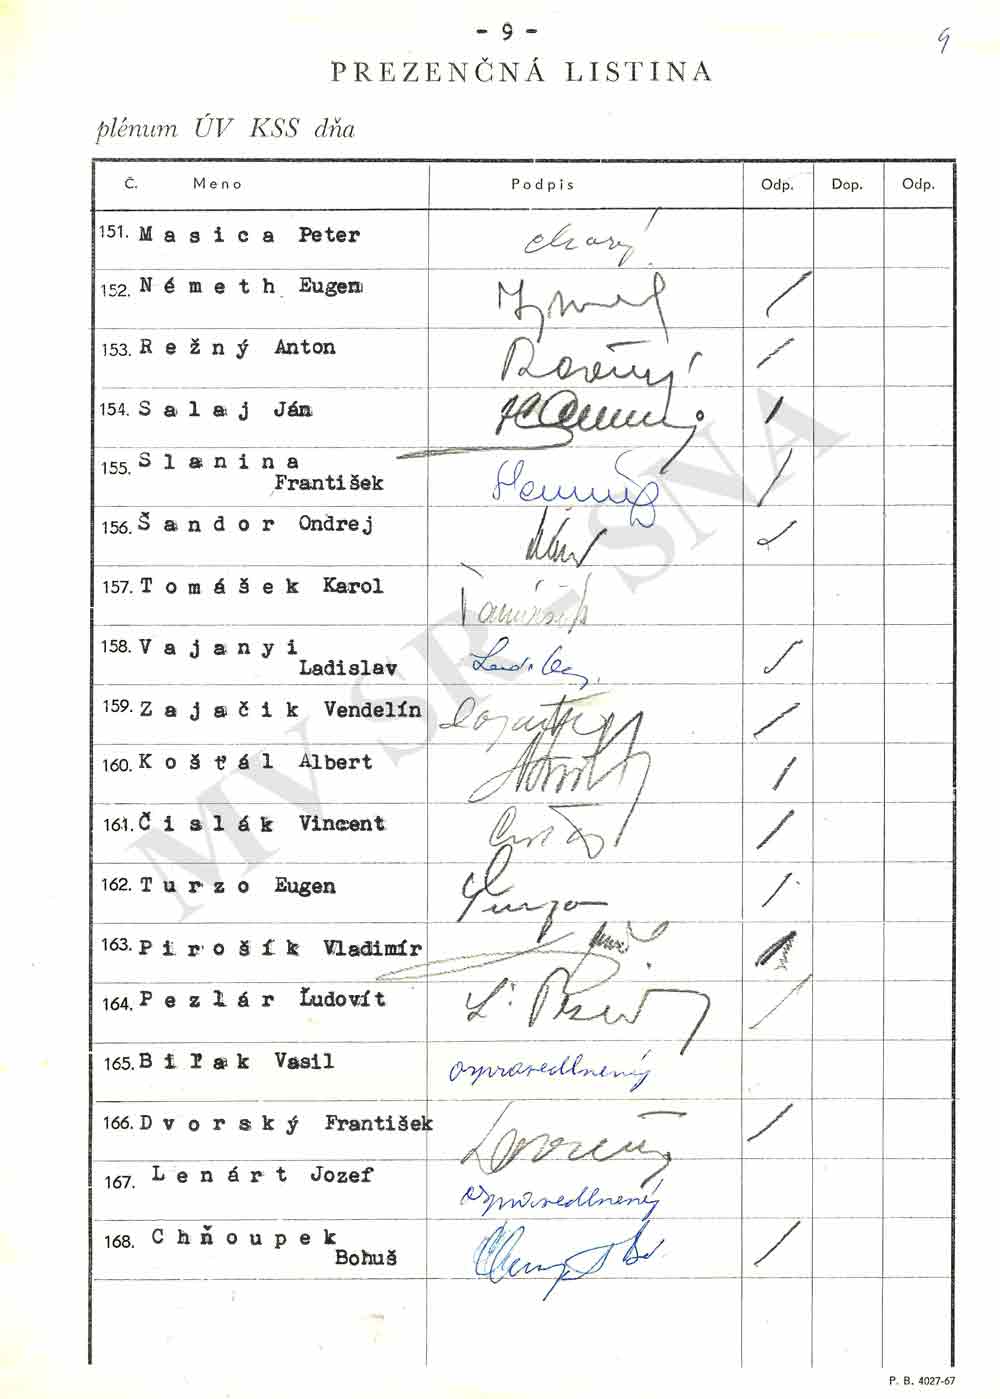 - 9 -
9
PREZENČNÁ LISTINA
plénum ÚV KSS dňa
Č. Meno Podpis Odp. Dop. Odp.
151. Masica Peter chorý
152. Németh Eugen
153. Režný Anton
154. Salaj Ján
155. Slanina
František
156. Šandor Ondrej
157. Tomášek Karol
158. Vajanyi
Ladislav
159. Zajačik Vendelín
160. Košťál Albert
161. Čislák Vincent
162. Turzo Eugen
163. Pirošík Vladimír
164. Pezlár Ľudovít
165. Biľak Vasil ospravedlnený
166. Dvorský František
167. Lenárt Jozef ospravedlnený
168. Chňoupek
Bohuš
MV SR - SNA
P. B. 4027-67